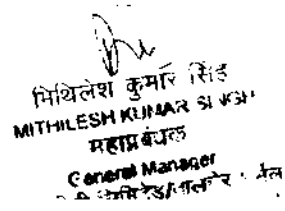 मिथिलेश कुमार सिंह
MITHILESH KUMAR SINGH
महाप्रबंधक
General Manager